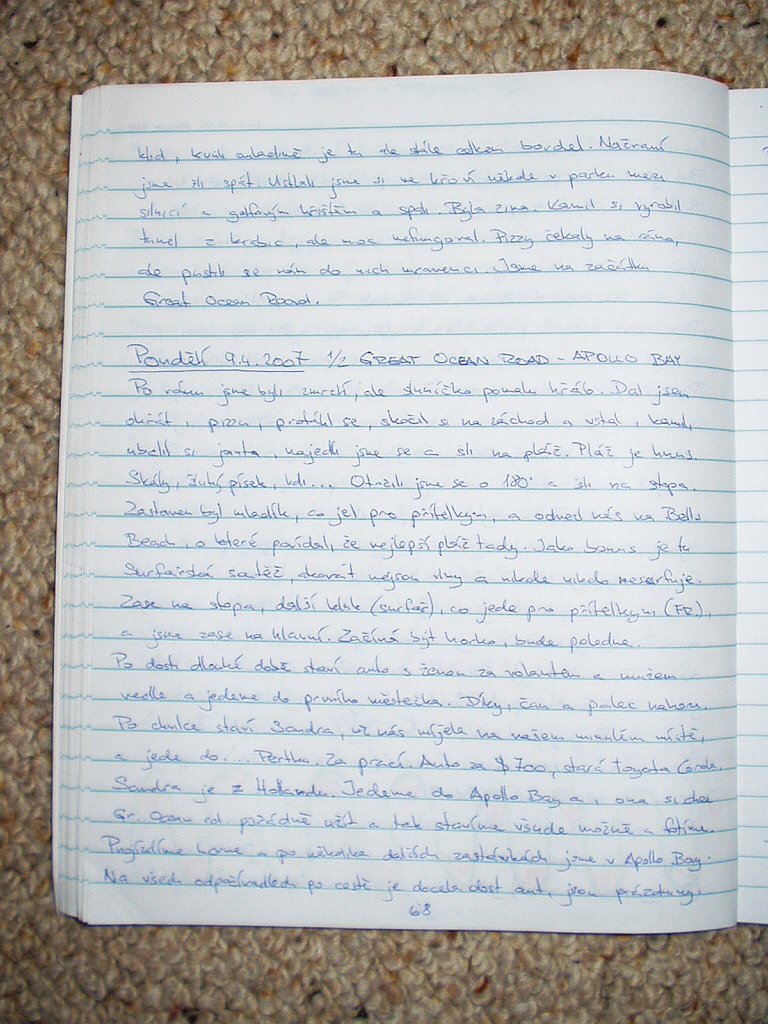 klid, kvůli mládeži je tu ale stále celkem bordel. Načraní
jsme šli spát. Ustlali jsme si ve křoví někde v parku mezi
silnicí a golfovým hřištěm a spali. Byla zima. Kamil si vyrobil
tunel z krabic, ale moc nefungoval. Pizzy čekaly na ráno,
ale pustili se nám do nich mravenci. Jsme na začátku
Great Ocean Road.
Pondělí 9.4.2007 1/2 GREAT OCEAN ROAD - APOLLO BAY
Po ránu jsme byli zmrzlí, ale sluníčko pomalu hřálo. Dal jsem
ohřát pizzu, protáhl se, skočil si na záchod a vstal i Kamil,
ubalil si jointa, najedli jsme se a šli na pláž. Pláž je hnus.
Skály, žlutý písek, lidi... Otočili jsme se o 180° a šli na stopa.
Zastaven byl mladík, co jel pro přítelkyni, a odvezl nás na Bells
Beach, o které povídal, že nejlepší pláž tady. Jako bonus je tu
surfařská soutěž, akorát nejsou vlny a nikde nikdo nesurfuje.
Zase na stopa, další klik (surfař), co jede pro přítelkyni (FR),
a jsme zase na hlavní. Začíná být horko, bude poledne.
Po dosti dlouhé době staví auto s ženou za volantem a mužem
vedle a jedeme do prvního městečka. Díky, čau a palec nahoru.
Po chvilce staví Sandra, už nás míjela na našem minulém místě,
a jede do... Perthu. Za prací. Auto za $700, stará Toyota Corolla.
Sandra je z Hollandu. Jedeme do Apollo Bay a i ona si chce
Gr. Ocean rd. pořádně užít a tak stavíme všude možně a fotíme.
Projíždíme a po několika dalších zastávkách jsme v Apollo Bay.
Na všech odpočívadlech po cestě je docela dost aut, jsou prázdniny.
68